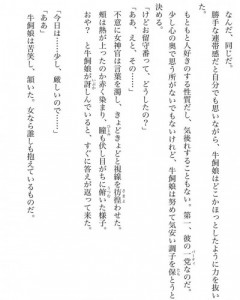 なんだ、同じだ。
勝手な連帯感だと自分でも思いながら、牛飼娘はどこかほっとしたように力を抜い
た。
もともと人好きのする性質だし、気後れすることもない。第一、彼の一党なのだ。
少し心の奥で思う所がないでもないけれど、牛飼娘は努めて気安い調子を保とうと
決める。
「けどお留守番って、どうしたの？」
「ああ、えと、その……」
不意に女神官は言葉を濁し、きょどきょどと視線を彷徨わせた。
頬は熱が上ったのか赤く染まり、瞳も伏し目がちに俯いた様子。
おや？　と牛飼娘が訝しんでいると、すぐに答えが返って来た。
「今日は……少し、厳しいので……」
「ああ」
牛飼娘は苦笑し、頷いた。女なら誰しも抱えているものだ。